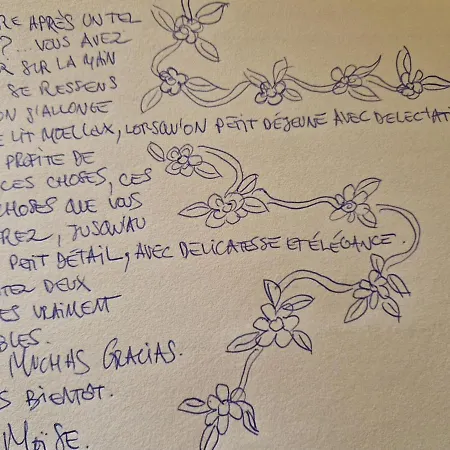 RE APRÈS UN TEL
?... VOUS AVEZ
R SUR LA MAIN
SE RESSENS
ON S'ALLONGE
E LIT MOELLEUX, LORSQU'ON PETIT DÉJEUNE AVEC DELECTATI
PROFITE DE
CES CHOSES, CES
CHOSES QUE VOUS
REZ, JUSQU'AU
PETIT DÉTAIL, AVEC DELICATESSE ET ÉLÉGANCE.
TEZ DEUX
ES VRAIMENT
BLES.
MUCHAS GRACIAS.
S BIENTÔT.
MOÏSE.